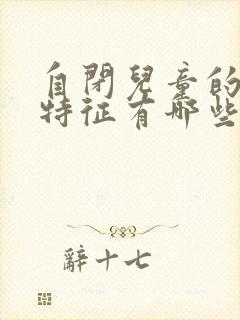 自閉兒童的
特征有哪些
辭十七